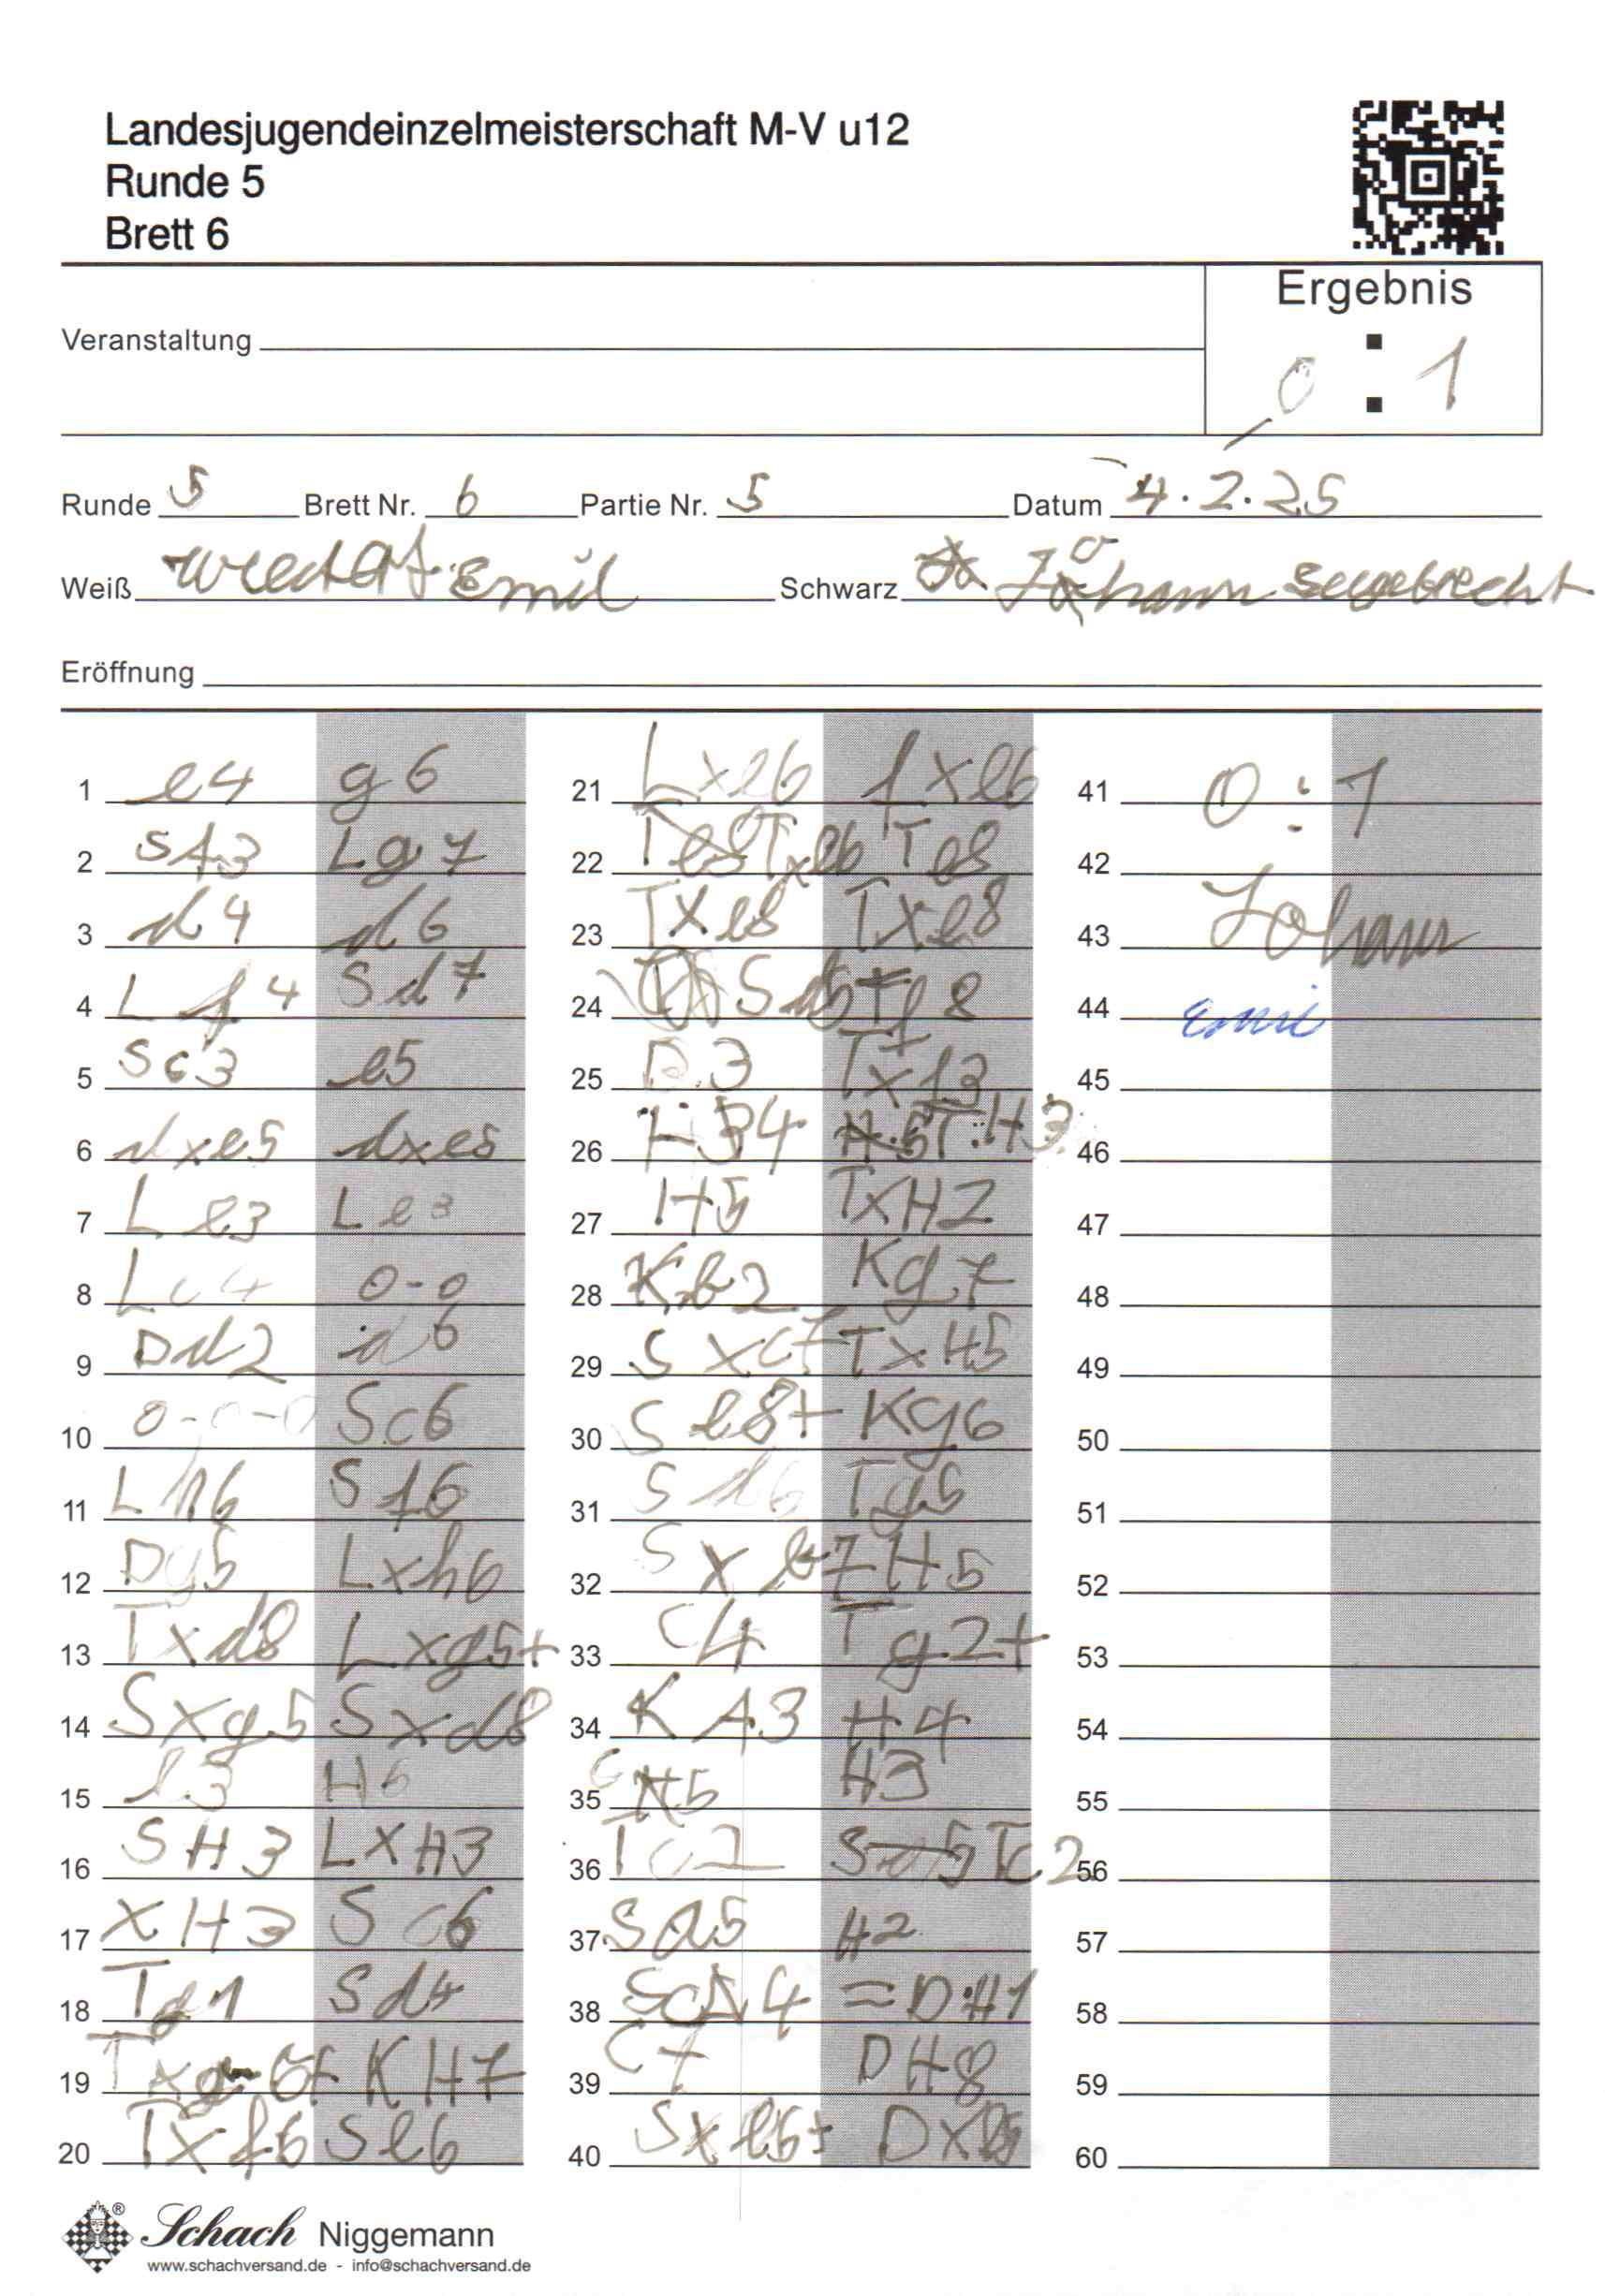 Landesjugendeinzelmeisterschaft M-V u12
Runde 5
Brett 6
Ergebnis
0 : 1
Veranstaltung
Runde 5 Brett Nr. 6 Partie Nr. 5 Datum 4.2.25
Weiß Emil Schwarz Johann Seegebrecht
Eröffnung
1 e4 g6
2 Sf3 Lg7
3 d4 d6
4 Lf4 Sd7
5 Sc3 e5
6 dxe5 dxe5
7 Le3 Le3
8 Lc4 0-0
9 Dd2 a6
10 0-0-0 Sc6
11 Lh6 Sf6
12 Dg5 Lxh6
13 Txd8 Lxg5+
14 Sxg5 Sxd8
15 b3 H6
16 SH3 LXH3
17 XH3 Sc6
18 Tg1 Sd4
19 Txg6+ KH7
20 Txf6 Se6
21 Lxe6 fxe6
22 Txe6 Te8
23 TXe8 TXe8
24 Sd5 Tf8
25 3 Txf3
26 H4 T:H3
27 H5 TxH2
28 Kb2 Kg7
29 Sxc7 TxH5
30 Se8+ Kg6
31 Sd6 Tg5
32 Sxb7 H5
33 C4 Tg2+
34 KA3 H4
35 C5 H3
36 Tc2
37 Sa5 H2
38 Sc4 =DH1
39 C7 DH8
40 Sxe5+ DXe5
41 0:1
42
43 Johann
44 Emil
45
46
47
48
49
50
51
52
53
54
55
56
57
58
59
60
Schach Niggemann
www.schachversand.de - info@schachversand.de